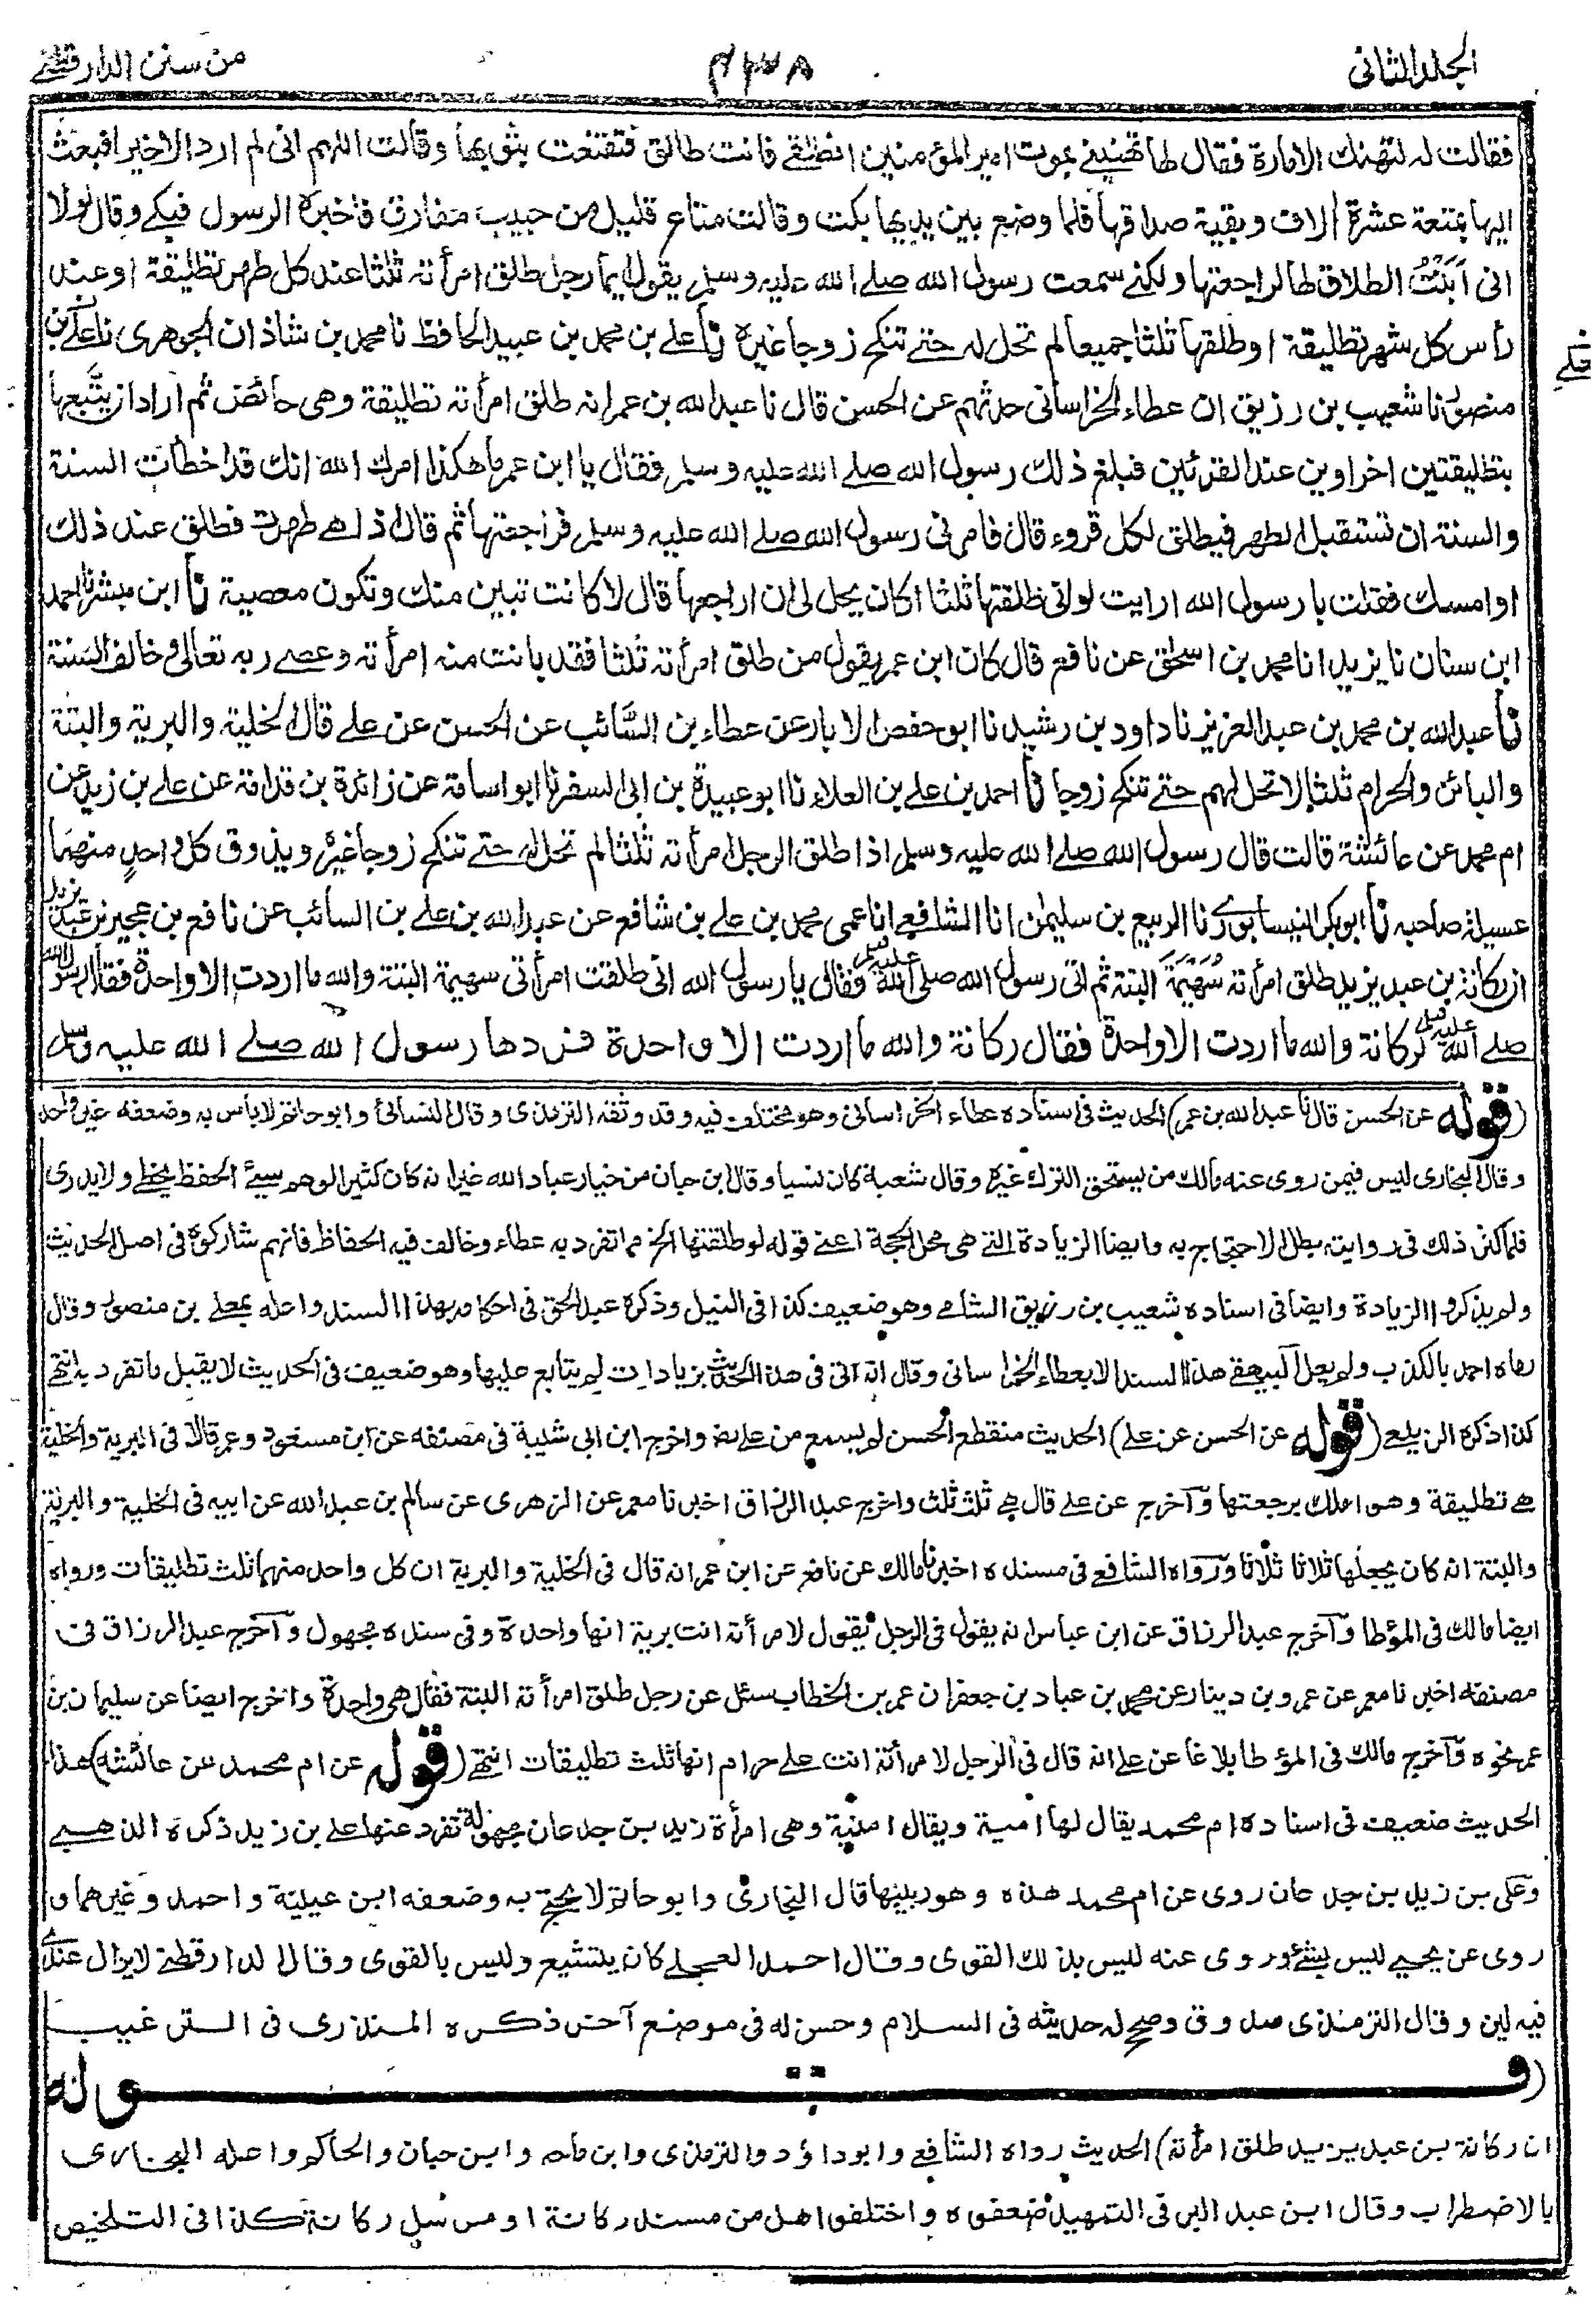 الجلد الثانى
٤٣٨
من سنن الدارقطنے
فقالت له لتهنك الامارة فقال لها تهنينے بموت امير المؤمنين انطلقے فانت طالق فتقنعت بثوبها وقالت اللهم انى لم ارد الا خيرا فبعث
اليها بمتعة عشرة الاف وبقية صداقها فلما وضع بين يديها بكت وقالت متاع قليل من حبيب مفارق فاخبره الرسول فبكے وقال لولا
انى اَبَنْتُ الطلاق لها لراجعتها ولكنے سمعت رسول الله صلے الله عليه وسلم يقول ايما رجل طلق امرأته ثلثا عند كل طهر تطليقة او عند
رأس كل شهر تطليقة او طلقها ثلثا جميعا لم تحل له حتے تنكح زوجا غيره نا علے بن محمد بن عبيد الحافظ نا محمد بن شاذان الجوهرى نا معلے بن
منصور نا شعيب بن رزيق ان عطاء الخراسانى حدثهم عن الحسن قال نا عبدالله بن عمر انه طلق امرأته تطليقة وهى حائض ثم اراد ان يتبعها
بتطليقتين اخراوين عند القرئين فبلغ ذلك رسول الله صلے الله عليه وسلم فقال يا ابن عمر ما هكذا امرك الله انك قد اخطأت السنة
والسنة ان تستقبل الطهر فيطلق لكل قروء قال فامرنى رسول الله صلے الله عليه وسلم فراجعتها ثم قال اذا هے طهرت فطلق عند ذلك
او امسك فقلت يا رسول الله ارايت لو انى طلقتها ثلثا اكان يحل لى ان اراجعها قال لا كانت تبين منك وتكون معصية نا ابن مبشر نا احمد
ابن سنان نا يزيد انا محمد بن اسحاق عن نافع قال كان ابن عمر يقول من طلق امرأته ثلثا فقد بانت منه امرأته وعصے ربه تعالى وخالف السنة
نا عبدالله بن محمد بن عبد العزيز نا داود بن رشيد نا ابو حفص الابار عن عطاء بن السَّائب عن الحسن عن علے قال الخلية والبرية والبتة
والبائن والحرام ثلثا لا تحل لهم حتے تنكح زوجا نا احمد بن علے بن العلاء نا ابو عبيدة بن ابى السفر نا ابو اسامة عن زائدة بن قدامة عن علے بن زيد عن
ام محمد عن عائشة قالت قال رسول الله صلے الله عليه وسلم اذا طلق الرجل امرأته ثلثا لم تحل له حتے تنكح زوجا غيره ويذوق كل واحدٍ منهما
عسيلة صاحبه نا ابو بكر النيسابورے نا الربيع بن سليمٰن انا الشافعے انا عمى محمد بن علے بن شافع عن عبدالله بن علے بن السائب عن نافع بن عجير بن عبد يزيد
ان ركانة بن عبد يزيد طلق امرأته سُهَيمَة البتة ثم اتى رسول الله صلے الله عليه وسلم فقال يا رسول الله انى طلقت امرأتى سهيمة البتة والله ما اردت الا واحدة فقال رسول الله
صلے الله عليه وسلم لركانة والله ما اردت الا واحدة فقال ركانة والله ما اردت الا واحدة فردها رسول الله صلے الله عليه وسلم
(قوله عن الحسن قال نا عبدالله بن عمر) الحديث فى اسناده عطاء الخراسانى وهو مختلف فيه وقد وثقه الترمذى وقال النسائى وابو حاتم لا باس به وضعفه غير واحد
وقال البخارى ليس فيمن روى عنه مالك من يستحق الترك غيره وقال شعبة كان نسيا وقال ابن حبان من خيار عباد الله غير انه كان كثير الوهم سيئ الحفظ يخطے ولا يدرى
فلما كثر ذلك فى روايته بطل الاحتجاج به وايضا الزيادة التے هى محل الحجة اعنے قوله لو طلقتها الخ مما تفرد به عطاء وخالف فيه الحفاظ فانهم شاركوه فى اصل الحديث
ولم يذكروا الزيادة وايضا فى اسناده شعيب بن رزيق الشامے وهو ضعيف كذا فى النيل وذكره عبد الحق فى احكامه بهذا السند واعله بمعلے بن منصور وقال
رماه احمد بالكذب ولم يعل البيهقے هذا السند الا بعطاء الخراسانى وقال انه اتى فى هذا الحديث بزيادات لم يتابع عليها وهو ضعيف فى الحديث لا يقبل ما تفرد به انتهے
كذا ذكره الزيلعے (قوله عن الحسن عن علے) الحديث منقطع الحسن لم يسمع من علے رض واخرج ابن ابى شيبة فى مصنفه عن ابن مسعود وعمر قالا فى البرية والخلية
هے تطليقة وهو املك برجعتها وآخرج عن علے قال هے ثلث ثلث واخرج عبد الرزاق اخبرنا معمر عن الزهرى عن سالم بن عبدالله عن ابيه فى الخلية والبرية
والبتة انه كان يجعلها ثلاثا ثلاثا ورواه الشافعے فى مسنده اخبرنا مالك عن نافع عن ابن عمر انه قال فى الخلية والبرية ان كل واحد منهما ثلث تطليقات ورواه
ايضا مالك فى المؤطا وآخرج عبد الرزاق عن ابن عباس انه يقول فى الرجل يقول لامرأته انت برية انها واحدة وفى سنده مجهول وآخرج عبد الرزاق فى
مصنفه اخبرنا معمر عن عمرو بن دينار عن محمد بن عباد بن جعفر ان عمر بن الخطاب سئل عن رجل طلق امرأته البتة فقال هى واحدة واخرج ايضا عن سليمان بن
عمر نحوه وآخرج مالك فى المؤطا بلاغا عن علے انه قال فى الرجل لامرأته انت علے حرام انها ثلث تطليقات انتهے (قوله عن ام محمد عن عائشة) هذا
الحديث ضعيف فى اسناده ام محمد يقال لها امية ويقال امنية وهى امرأة زيد بن جدعان مجهولة تفرد عنها علے بن زيد ذكره الذهبے
وعلى بن زيد بن جدعان روى عن ام محمد هذه وهو ربيبها قال البخارى وابو حاتم لا يحتج به وضعفه ابن عيينة واحمد وغيرهما و
روى عن يحيے ليس بشئ وروى عنه ليس بذلك القوى وقال احمد العجلے كان يتشيع وليس بالقوى وقال الدارقطنے لا يزال عندے
فيه لين وقال الترمذى صدوق وصحح له حديثه فى السلام وحسن له فى موضع آخر ذكره المنذرى فى الترغيب
(قوله
ان ركانة بن عبد يزيد طلق امرأته) الحديث رواه الشافعے وابو داؤد والترمذى وابن ماجه وابن حبان والحاكم واعله البخارى
بالاضطراب وقال ابن عبد البر فى التمهيد ضعفوه واختلفوا هل من مسند ركانة او مرسل ركانة كذا فى التلخيص